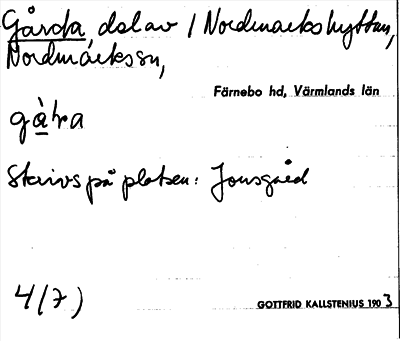 Gårda, del av / Nordmarkshyttan,
Nordmarks sn,
Färnebo hd, Värmlands län
Skrivs på platsen: Jonsgård
4/7)
GOTTFRID KALLSTENIUS 1903